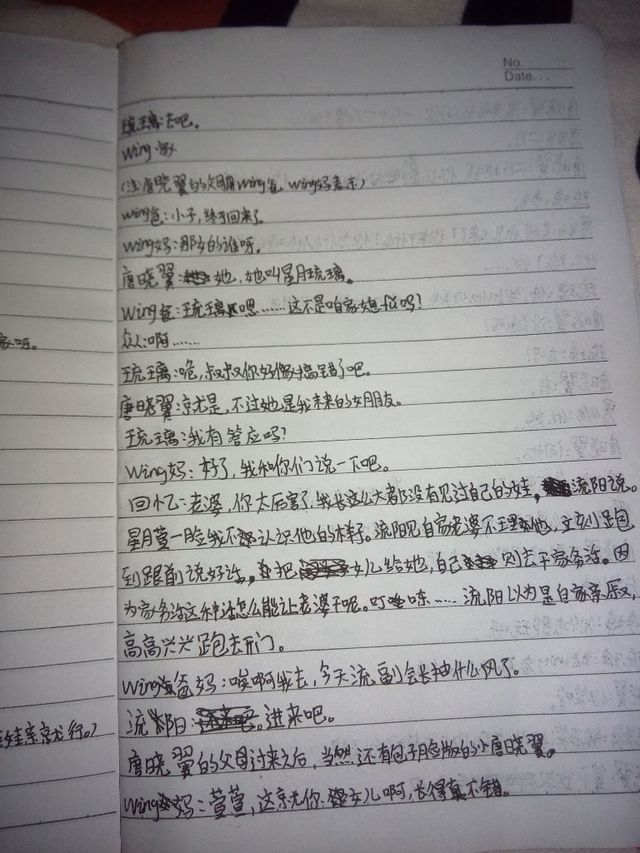 No.
Date...
琉璃:去吧。
wing:歌
(注:唐晓翼的父母用wing爸,wing妈表示)
wing爸:小子,终于回来了
wing妈:那女的谁呀。
唐晓翼:她,她叫星月琉璃。
wing爸:琉璃嗯……这不是咱家媳妇吗?
众人:啊……
琉璃:咆,叔叔你好像搞错了吧。
唐晓翼:就是,不过她是我未来的女朋友。
琉璃:我有答应吗?
wing妈:好了,我和你们说一下吧。
回忆:老婆,你太厉害了,我长这么大都没有见过自己的娃。流阳说。
星月萱一脸我不认识他的样子。流阳见自家老婆不理他,立刻跑
到跟前说好话。把女儿给她,自己则去干家务活。因
为家务活这种活怎么能让老婆干呢。叮咚……流阳以为是自家亲戚,
高高兴兴跑去开门。
wing爸妈:唉啊我去,今天流副会长抽什么风了。
流阳:进来吧。
唐晓翼的父母过来之后,当然还有包子脸版的小唐晓翼。
wing妈:萱萱,这就是你女儿啊,长得真不错。
家呀。
娃亲亲才行。)